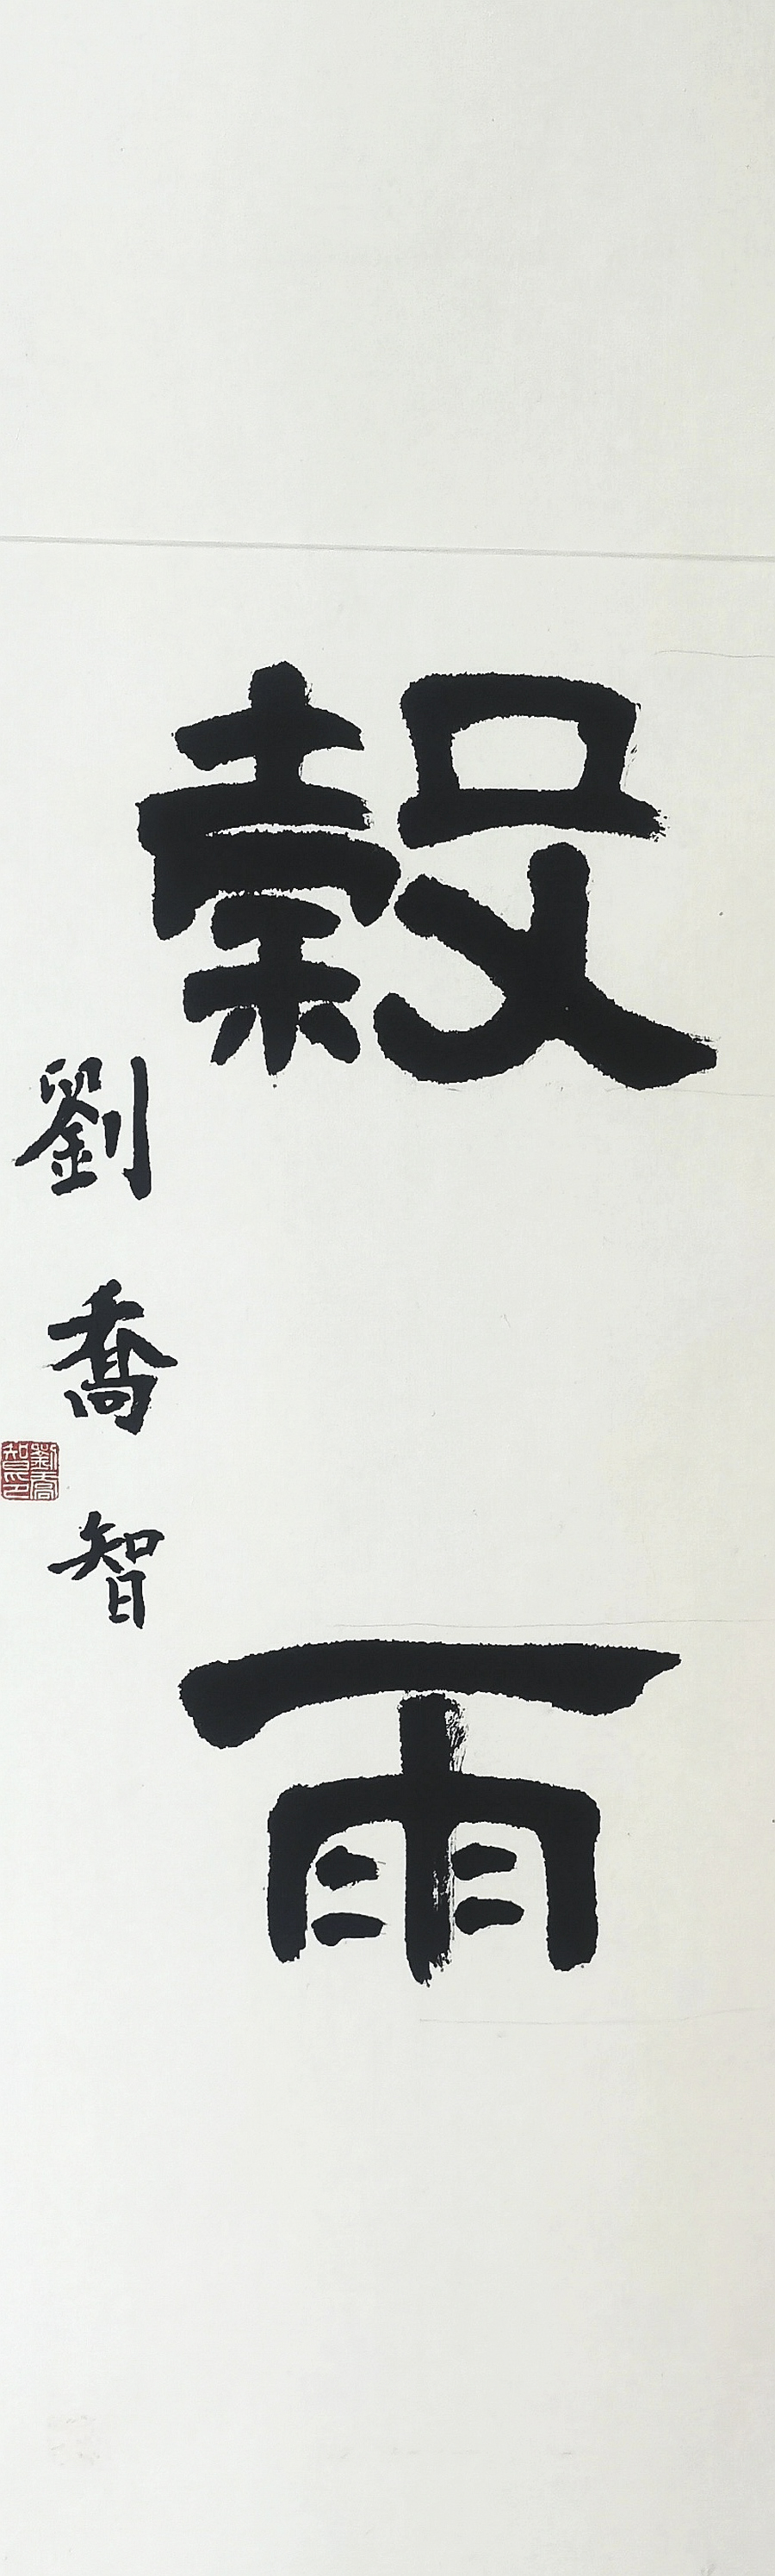 穀雨
劉喬智
劉喬智印